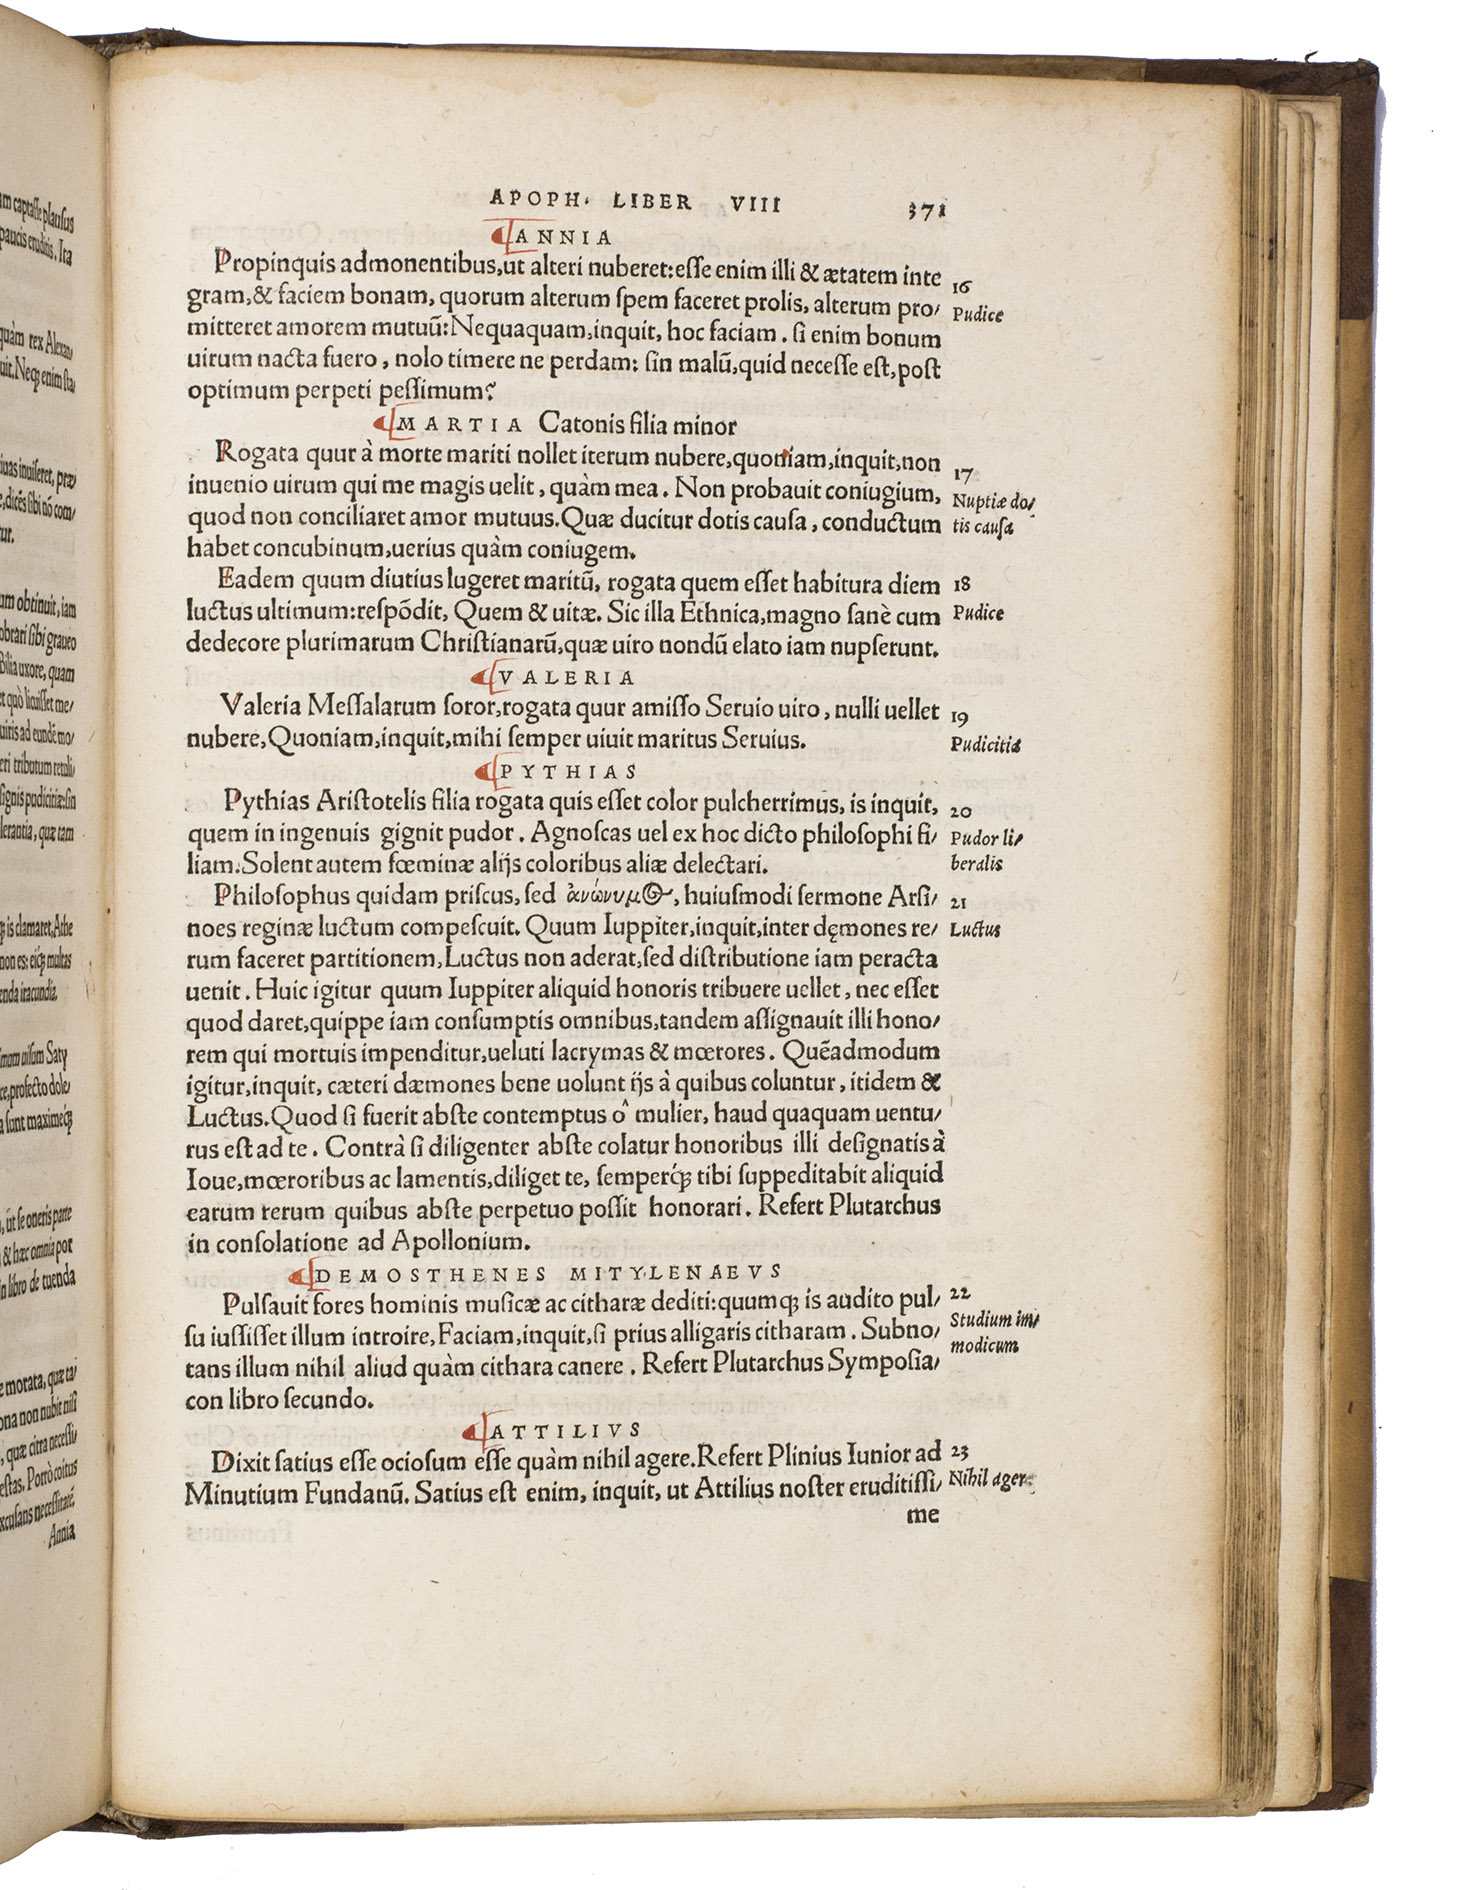 APOPH. LIBER VIII 371
ANNIA
Propinquis admonentibus,ut alteri nuberet:esse enim illi & ætatem inte
16
gram,& faciem bonam, quorum alterum spem faceret prolis, alterum pro/
Pudice
mitteret amorem mutuū:Nequaquam,inquit, hoc faciam. si enim bonum
uirum nacta fuero, nolo timere ne perdam: sin malū,quid necesse est,post
optimum perpeti pessimum?
MARTIA Catonis filia minor
Rogata quur à morte mariti nollet iterum nubere,quoniam,inquit,non
17
inuenio uirum qui me magis uelit, quàm mea. Non probauit coniugium,
Nuptiæ do/
quod non conciliaret amor mutuus.Quæ ducitur dotis causa, conductum
tis causa
habet concubinum,uerius quàm coniugem.
Eadem quum diutius lugeret maritū, rogata quem esset habitura diem
18
luctus ultimum:respōdit, Quem & uitæ. Sic illa Ethnica,magno sanè cum
Pudice
dedecore plurimarum Christianarū,quæ uiro nondū elato iam nupserunt.
VALERIA
Valeria Messalarum soror,rogata quur amisso Seruio uiro, nulli uellet
19
nubere,Quoniam,inquit,mihi semper uiuit maritus Seruius.
Pudicitia
PYTHIAS
Pythias Aristotelis filia rogata quis esset color pulcherrimus, is inquit,
20
quem in ingenuis gignit pudor. Agnoscas uel ex hoc dicto philosophi fi/
Pudor li/
liam.Solent autem fœminæ alijs coloribus aliæ delectari.
beralis
Philosophus quidam priscus, sed ἀνώνυμος, huiusmodi sermone Arsi/
21
noes reginæ luctum compescuit. Quum Iuppiter,inquit,inter dęmones re/
Luctus
rum faceret partitionem,Luctus non aderat,sed distributione iam peracta
uenit. Huic igitur quum Iuppiter aliquid honoris tribuere uellet, nec esset
quod daret,quippe iam consumptis omnibus,tandem assignauit illi hono/
rem qui mortuis impenditur,ueluti lacrymas & mœrores. Quēadmodum
igitur,inquit, cæteri dæmones bene uolunt ijs à quibus coluntur, itidem &
Luctus.Quod si fuerit abste contemptus ô mulier, haud quaquam uentu/
rus est ad te. Contrà si diligenter abste colatur honoribus illi designatis à
Ioue,mœroribus ac lamentis,diliget te, semperq́; tibi suppeditabit aliquid
earum rerum quibus abste perpetuo possit honorari. Refert Plutarchus
in consolatione ad Apollonium.
DEMOSTHENES MITYLENAEVS
Pulsauit fores hominis musicæ ac citharæ dediti:quumq; is audito pul/
22
su iussisset illum introire,Faciam,inquit,si prius alligaris citharam. Subno/
Studium im/
tans illum nihil aliud quàm cithara canere. Refert Plutarchus Symposia/
modicum
con libro secundo.
ATTILIVS
Dixit satius esse ociosum esse quàm nihil agere.Refert Plinius Iunior ad
23
Minutium Fundanū. Satius est enim, inquit, ut Attilius noster eruditissi/
Nihil agere
me